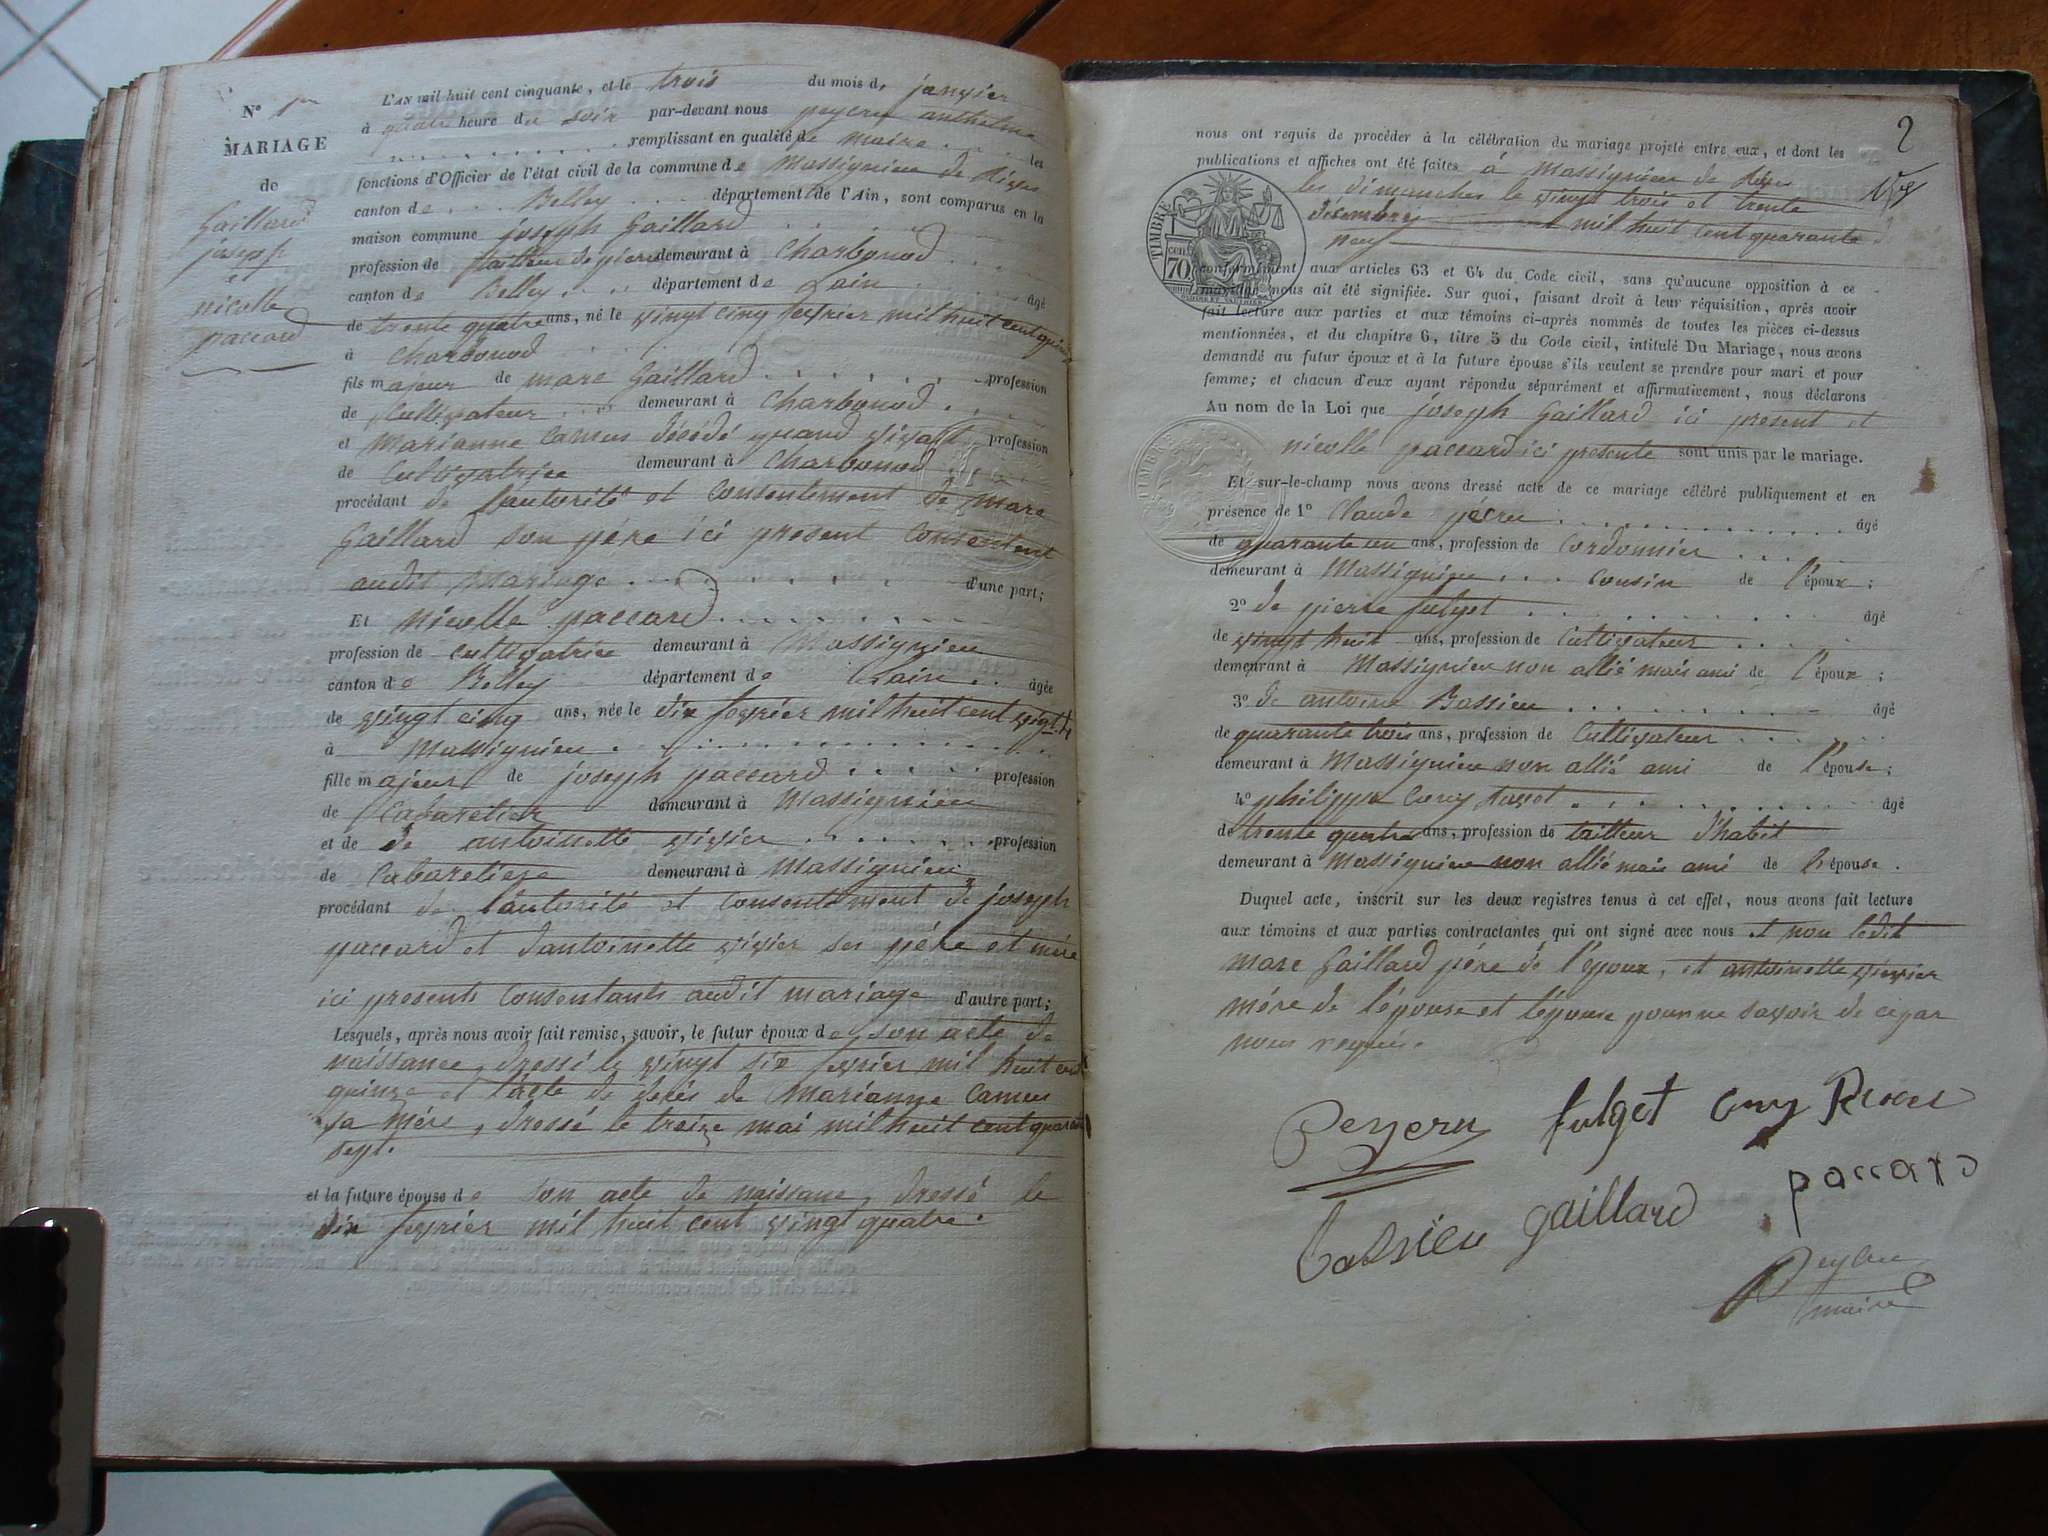 N° 1er
MARIAGE
de
Gaillard
joseph
et
nicolle
paccard
L'AN mil huit cent cinquante, et le trois du mois de janvier
à quatre heure du soir par-devant nous peyeru anthelme
remplissant en qualité de maire les
fonctions d'Officier de l'état civil de la commune de Massignieu de Rives
canton de Belley département de l'Ain, sont comparus en la
maison commune joseph Gaillard
profession de tailleur de pierre demeurant à Charbonod
canton de Belley département de Lain âgé
de trente quatre ans, né le vingt cinq fevrier mil huit cent quinze
à Charbonod
fils majeur de marc Gaillard profession
de Cultivateur demeurant à Charbonod
et Marianne Camus décédé quand vivait profession
de Cultivatrice demeurant à Charbonod
procédant de lautorité et consentement de marc
Gaillard son père ici present consentent
audit mariage d'une part;
Et nicolle paccard
profession de cultivatrice demeurant à Massignieu
canton de Belley département de Lain âgée
de vingt cinq ans, née le dix fevrier mil huit cent vigt 4
à Massignieu
fille majeur de joseph paccard profession
de Cabaretier demeurant à Massignieu
et de de antoinette vivier profession
de Cabaretiere demeurant à Massignieu
procédant de lautorité et consentement de joseph
paccard et dantoinette vivier ses père et mère
ici presents consentants audit mariage d'autre part;
Lesquels, après nous avoir fait remise, savoir, le futur époux de son acte de
naissance, dressé le vingt six fevrier mil huit cent
quinze et l'acte de décès de Marianne Camus
sa mère, dressé le treize mai mil huit cent quarante
sept.
et la future épouse de son acte de naissane, dressé le
dix fevrier mil huit cent vingt quatre.
2
nous ont requis de procéder à la célébration du mariage projeté entre eux, et dont les
publications et affiches ont été faites à Massignieu de Rives
les dimanches le vingt trois et trente
décembre mil huit cent quarante
neuf
TIMBRE
70
conformément aux articles 63 et 64 du Code civil, sans qu'aucune opposition à ce
mariage nous ait été signifiée. Sur quoi, faisant droit à leur réquisition, après avoir
fait lecture aux parties et aux témoins ci-après nommés de toutes les pièces ci-dessus
mentionnées, et du chapitre 6, titre 5 du Code civil, intitulé Du Mariage, nous avons
demandé au futur époux et à la future épouse s'ils veulent se prendre pour mari et pour
femme; et chacun d'eux ayant répondu séparément et affirmativement, nous déclarons
Au nom de la Loi que joseph Gaillard ici present et
nicolle paccard ici presente sont unis par le mariage.
Et sur-le-champ nous avons dressé acte de ce mariage célébré publiquement et en
présence de 1° Claude âgé
de quarante un ans, profession de Cordonnier
demeurant à Massignieu cousin de l'époux;
2° de pierre fulget âgé
de vingt huit ans, profession de Cultivateur
demeurant à Massignieu non allié mais ami de l'époux;
3° de antoine Bassieu âgé
de quarante trois ans, profession de Cultivateur
demeurant à Massignieu non allié ami de l'épouse;
4° philippe Cuny âgé
de trente quatre ans, profession de tailleur d'habit
demeurant à Massignieu non allié mais ami de l'épouse.
Duquel acte, inscrit sur les deux registres tenus à cet effet, nous avons fait lecture
aux témoins et aux parties contractantes qui ont signé avec nous et non ledit
marc Gaillard père de l'époux, et antoinette vivier
mère de l'épouse et l'épouse pour ne savoir de ce par
nous requis.
Peyeru fulget Cuny
Bassieu gaillard paccard
maire